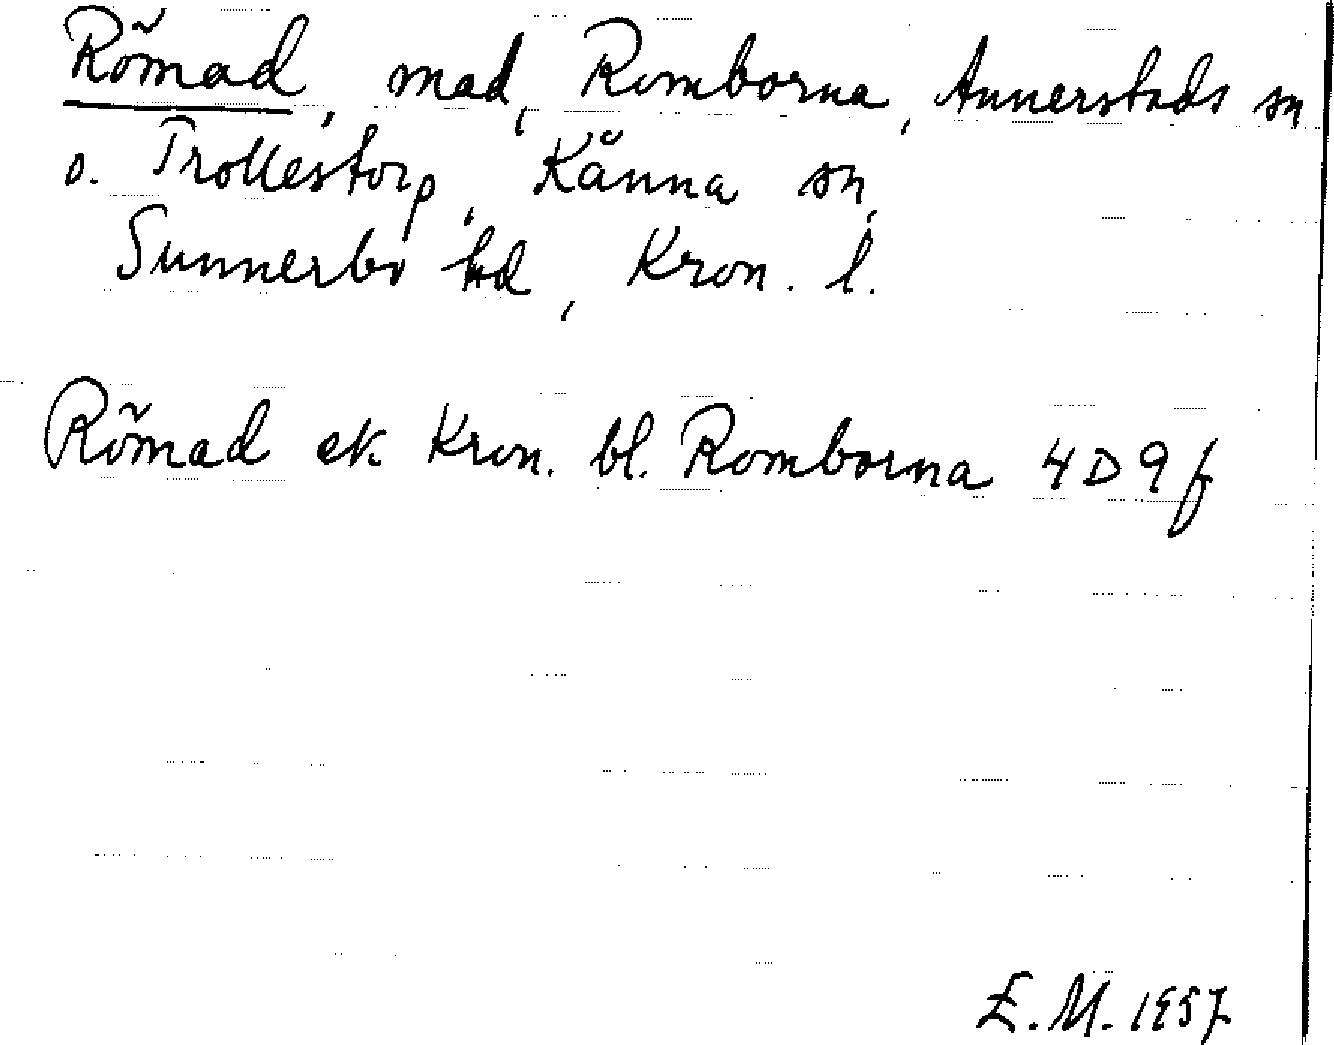 Römad, mad, Romborna, Annerstads sn
o. Trollestorp, Kånna sn,
Sunnerbo hd, Kron. l.
Römad ek. Kron. bl. Romborna 4D9f
E.M. 1957